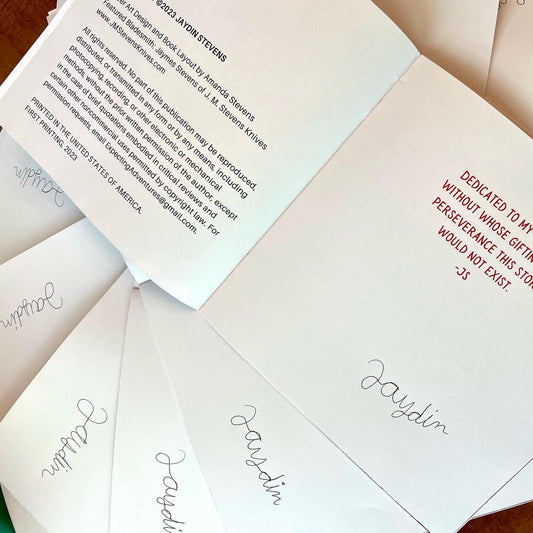 ©2023 JAYDIN STEVENS
Art Design and Book Layout by Amanda Stevens
Featured Bladesmith: Jaymes Stevens of J. M. Stevens Knives
www.JMStevensKnives.com
All rights reserved. No part of this publication may be reproduced,
distributed, or transmitted in any form or by any means, including
photocopying, recording, or other electronic or mechanical
methods, without the prior written permission of the author, except
in the case of brief quotations embodied in critical reviews and
certain other noncommercial uses permitted by copyright law. For
permission requests, email ExpectingAdventures@gmail.com.
PRINTED IN THE UNITED STATES OF AMERICA.
FIRST PRINTING, 2023
DEDICATED TO MY
WITHOUT WHOSE
PERSEVERANCE THIS
WOULD NOT EXIST.
-JS
Jaydin
Jaydin
Jaydin
Jaydin
Jaydin
Jaydin